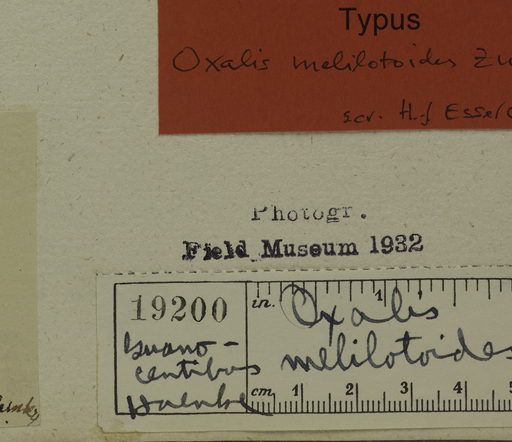 Typus
Oxalis melilotoides Zu
scr. H.J Esser
Photogr.
Field Museum 1932
19200
in.
1
Oxalis
Guano-
centibus
melilotoides
Haenke
cm 1 2 3 4 5